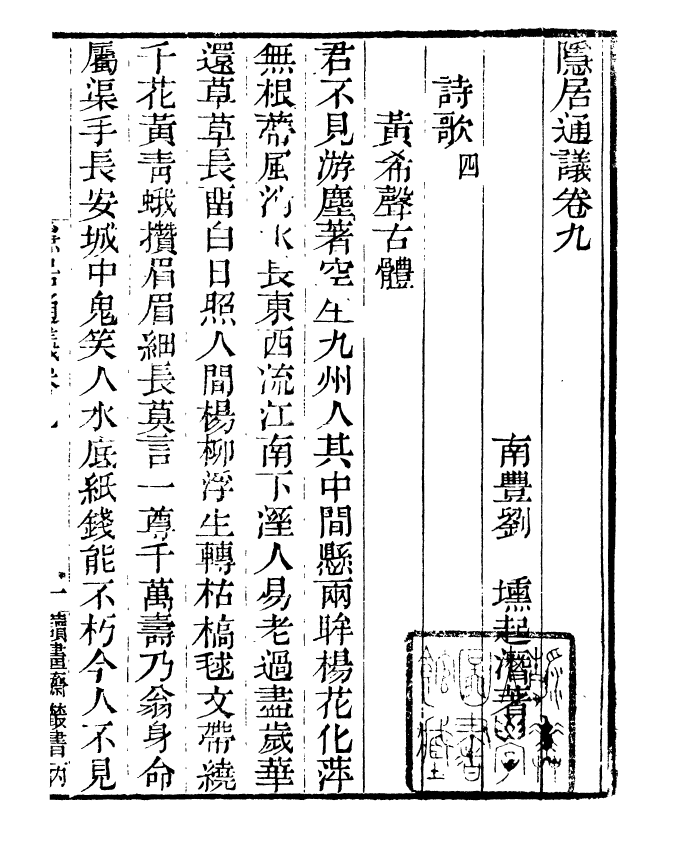 隱居通議卷九
南豐劉　壎起潛著
詩歌四
黃希聲古體
君不見游塵著空生九州人其中間懸兩眸楊花化萍
無根蔕風滿水長東西流江南下溼人易老過盡歲華
還草草長留白日照人間楊柳浮生轉枯槁毬文帶繞
千花黃靑蛾攢眉眉細長莫言一尊千萬壽乃翁身命
屬渠手長安城中鬼笑人水底紙錢能不朽今人不見
隱居通議卷九
一
讀畫齋叢書 丙